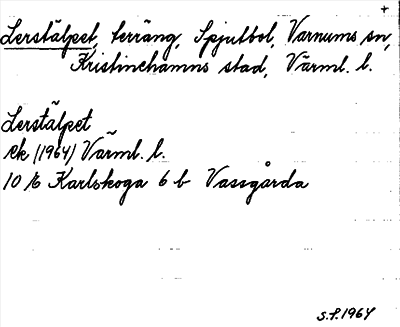 +
Lerstälpet, terräng, Spjutbol, Varnums sn,
Kristinehamns stad, Värml. l.
Lerstälpet
ek (1964) Värml. l.
10/6 Karlskoga 6 b Vassgårda
S.F. 1964